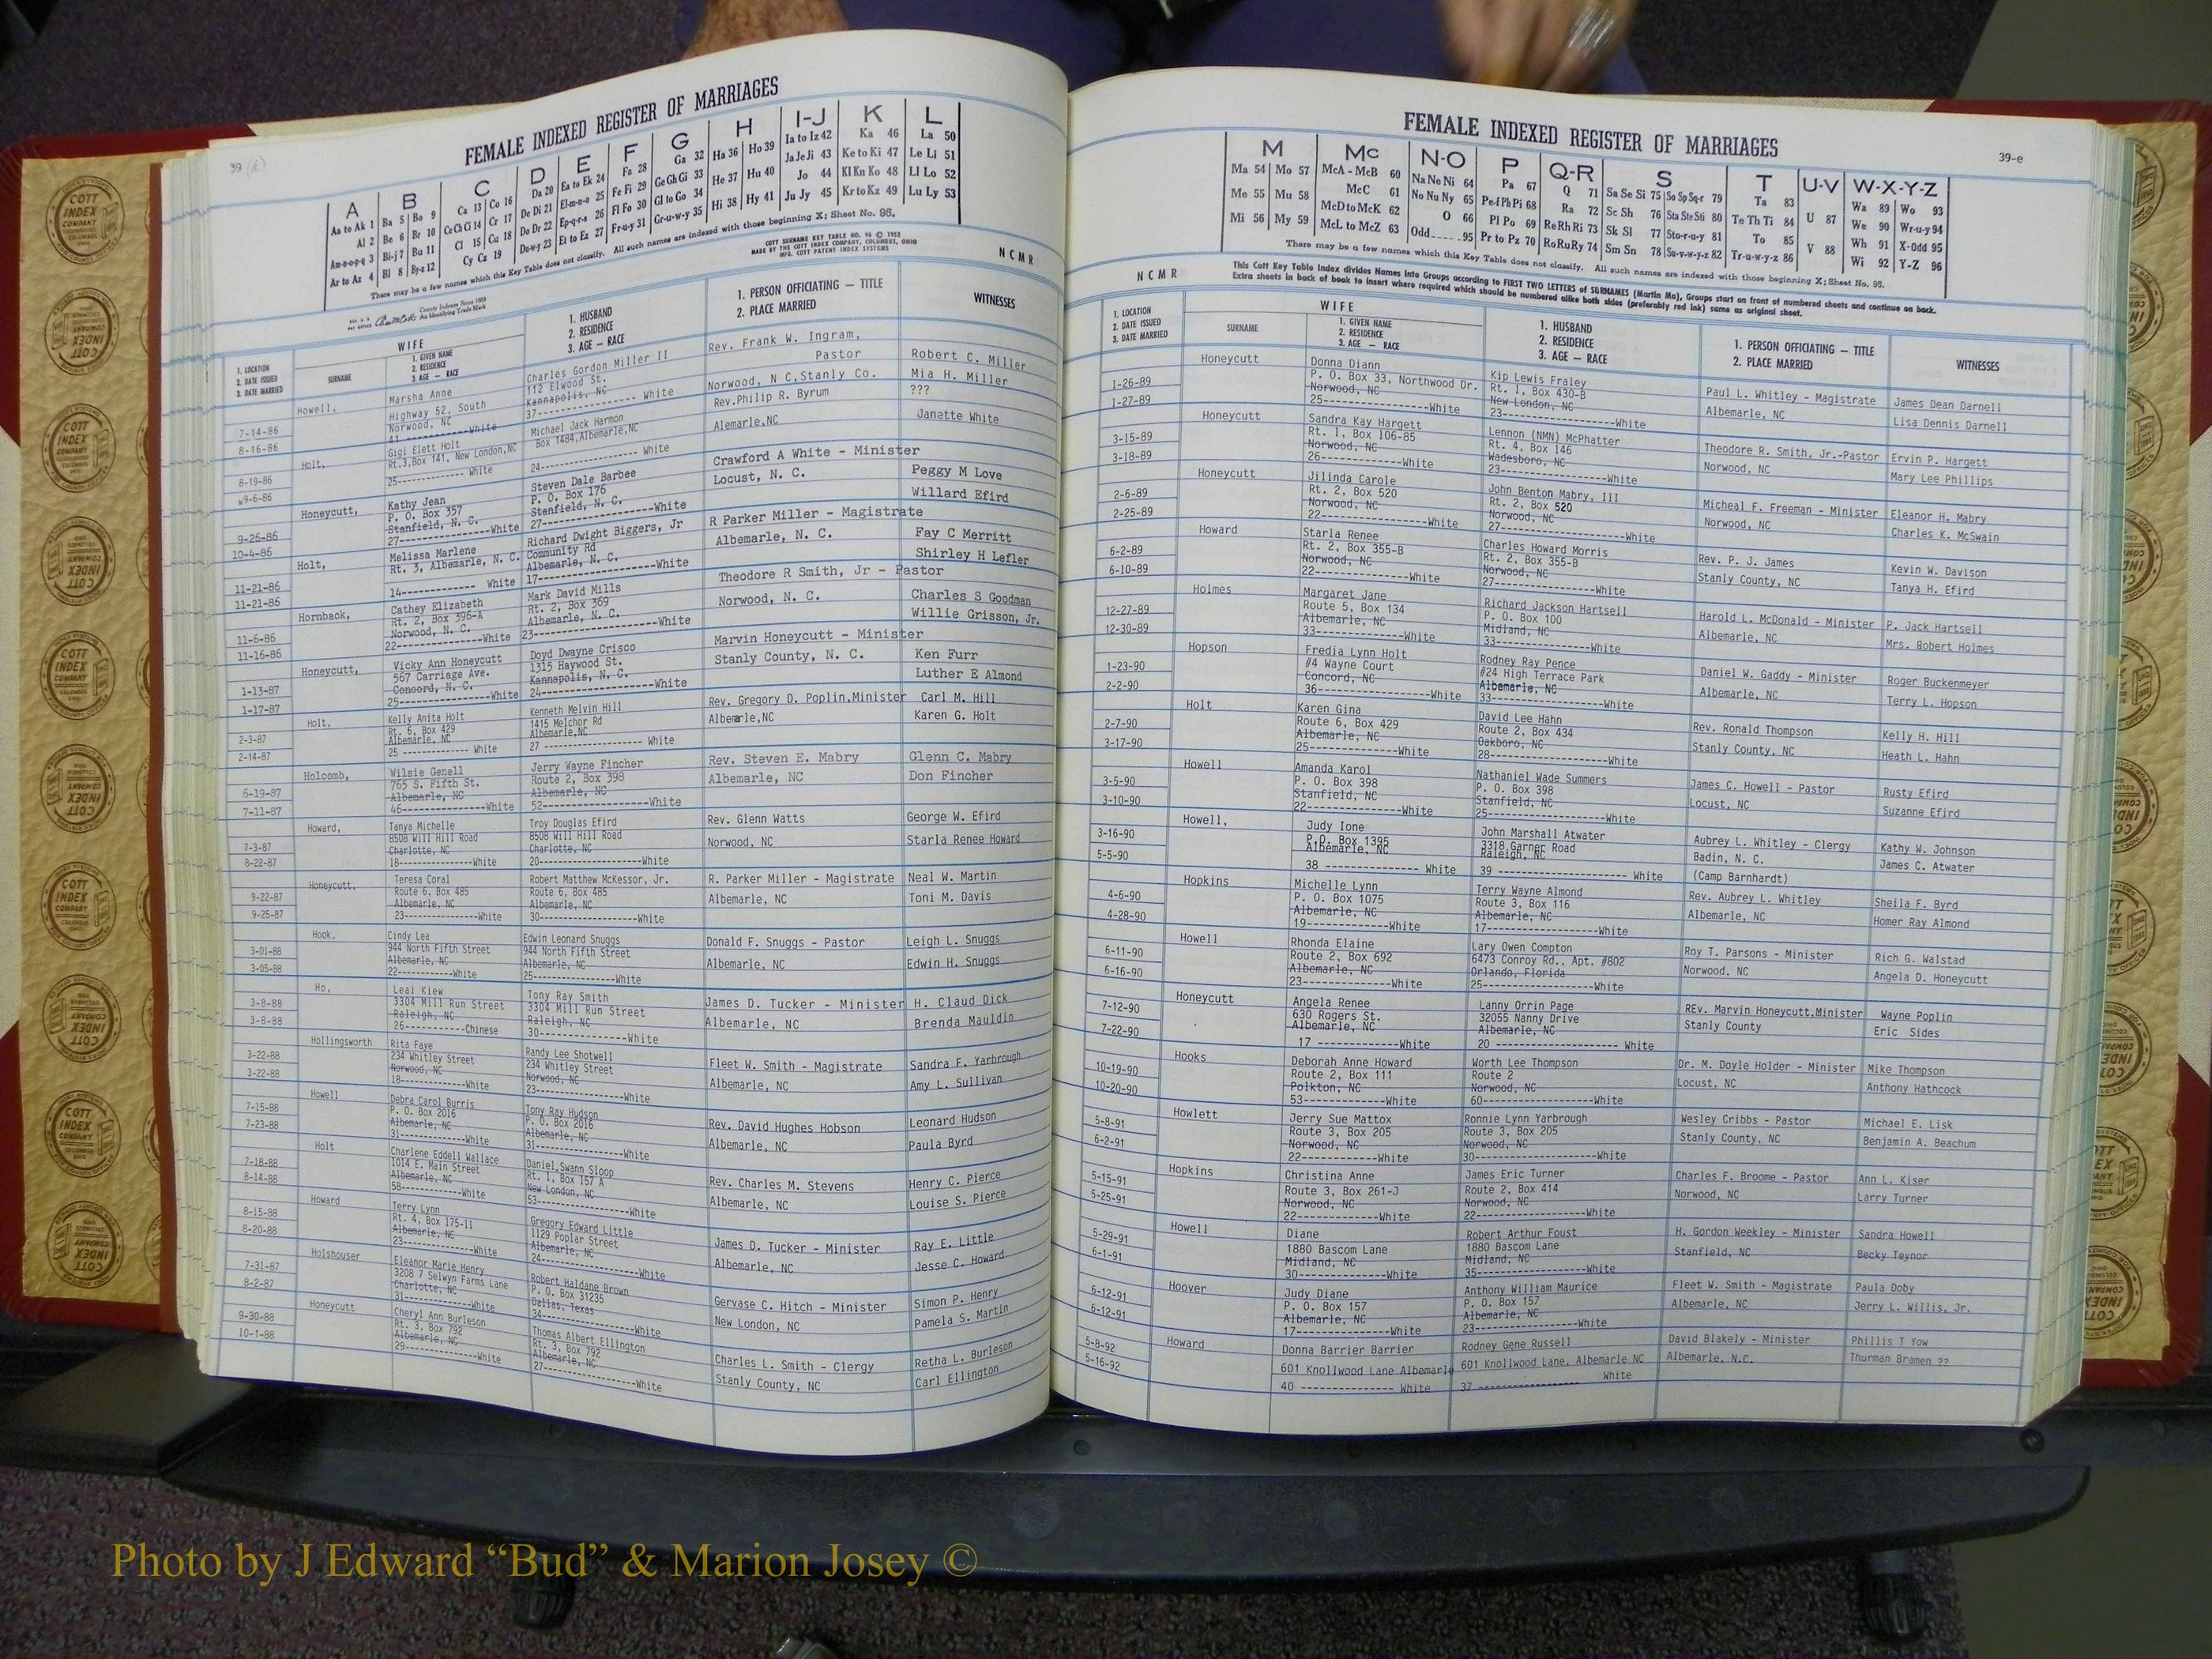 FEMALE INDEXED REGISTER OF MARRIAGES
39 (d)
A B C D E F G H I-J K L
Aa to Ak 1 Ba 5 Bo 9 Ca 13 Co 16 Da 20 Ea to Ek 24 Fa 28 Ga 32 Ha 36 Ho 39 Ia to Iz 42 Ka 46 La 50
Al 2 Be 6 Br 10 Ce Ch Ci 14 Cr 17 De Di 21 El-m-n-o 25 Fe Fi 29 Ge Gh Gi 33 He 37 Hu 40 Ja Je Ji 43 Ke to Ki 47 Le Li 51
Am-n-o-p-q 3 Bi-j 7 Bu 11 Cl 15 Cu 18 Do Dr 22 Ep-q-r-s 26 Fl Fo 30 Gl to Go 34 Hi 38 Hy 41 Jo 44 Kl Kn Ko 48 Ll Lo 52
Ar to Az 4 Bl 8 By-z 12 Cy Cz 19 Du-w-y 23 Et to Ez 27 Fr-u-y 31 Gr-u-w-y 35 Ju Jy 45 Kr to Kz 49 Lu Ly 53
There may be a few names which this Key Table does not classify. All such names are indexed with those beginning X; Sheet No. 95.
COTT SURNAME KEY TABLE NO. 96 © 1952
MADE BY THE COTT INDEX COMPANY, COLUMBUS, OHIO
MFG. COTT PATENT INDEX SYSTEMS
NCMR
County Indexes Since 1888
An Identifying Trade Mark
WIFE
1. LOCATION
2. DATE ISSUED
3. DATE MARRIED
SURNAME
1. GIVEN NAME
2. RESIDENCE
3. AGE — RACE
1. HUSBAND
2. RESIDENCE
3. AGE — RACE
1. PERSON OFFICIATING — TITLE
2. PLACE MARRIED
WITNESSES
Howell, Marsha Anne Charles Gordon Miller II Rev. Frank W. Ingram, Robert C. Miller
Highway 52, South 112 Elwood St. Pastor Mia H. Miller
7-14-86 Norwood, NC Kannapolis, NC Norwood, N C,Stanly Co.
8-16-86 41 ---------White 37------------ White
Holt, Gigi Elett Holt Michael Jack Harmon Rev.Philip R. Byrum ???
8-19-86 Rt.3,Box 141, New London,NC Box 1484,Albemarle,NC Alemarle,NC Janette White
w9-6-86 25----------- White 24------------- White
Honeycutt, Kathy Jean Steven Dale Barbee Crawford A White - Minister
P. O. Box 357 P. O. Box 176 Locust, N. C. Peggy M Love
9-26-86 Stanfield, N. C. Stanfield, N. C. Willard Efird
10-4-86 27------------White 27--------------White
Holt, Melissa Marlene Richard Dwight Biggers, Jr R Parker Miller - Magistrate
Rt. 3, Albemarle, N. C. Community Rd Albemarle, N. C. Fay C Merritt
11-21-86 Albemarle, N. C. Shirley H Lefler
11-21-86 14------------ White 17--------------White
Hornback, Cathey Elizabeth Mark David Mills Theodore R Smith, Jr - Pastor
Rt. 2, Box 396-A Rt. 2, Box 369 Norwood, N. C. Charles S Goodman
11-6-86 Norwood, N. C. Albemarle, N. C. Willie Grisson, Jr.
11-16-86 22------------White 23--------------White
Honeycutt, Vicky Ann Honeycutt Doyd Dwayne Crisco Marvin Honeycutt - Minister
567 Carriage Ave. 1315 Haywood St. Stanly County, N. C. Ken Furr
1-13-87 Concord, N. C. Kannapolis, N. C. Luther E Almond
1-17-87 25------------White 24--------------White
Holt, Kelly Anita Holt Kenneth Melvin Hill Rev. Gregory D. Poplin,Minister Carl M. Hill
2-3-87 Rt. 6, Box 429 1415 Melchor Rd Albemarle,NC Karen G. Holt
Albemarle, NC Albemarle,NC
2-14-87 25 ----------- White 27 ------------------ White
Holcomb, Wilsie Genell Jerry Wayne Fincher Rev. Steven E. Mabry Glenn C. Mabry
6-19-87 765 S. Fifth St. Route 2, Box 398 Albemarle, NC Don Fincher
Albemarle, NC Albemarle, NC
7-11-87 46-------------White 52-------------White
Howard, Tanya Michelle Troy Douglas Efird Rev. Glenn Watts George W. Efird
7-3-87 8508 Will Hill Road 8508 Will Hill Road Norwood, NC Starla Renee Howard
Charlotte, NC Charlotte, NC
8-22-87 18-------------White 20-----------------White
Honeycutt, Teresa Coral Robert Matthew McKessor, Jr. R. Parker Miller - Magistrate Neal W. Martin
9-22-87 Route 6, Box 485 Route 6, Box 485 Albemarle, NC Toni M. Davis
Albemarle, NC Albemarle, NC
9-25-87 23-------------White 30----------------White
Hook, Cindy Lea Edwin Leonard Snuggs Donald F. Snuggs - Pastor Leigh L. Snuggs
3-01-88 944 North Fifth Street 944 North Fifth Street Albemarle, NC Edwin H. Snuggs
Albemarle, NC Albemarle, NC
3-05-88 22-----------White 25----------------White
Ho, Leai Kiew Tony Ray Smith James D. Tucker - Minister H. Claud Dick
3-8-88 3304 Mill Run Street 3304 Mill Run Street Albemarle, NC Brenda Mauldin
Raleigh, NC Raleigh, NC
3-8-88 26-----------Chinese 30---------------White
Hollingsworth Rita Faye Randy Lee Shotwell Fleet W. Smith - Magistrate Sandra F. Yarbrough
3-22-88 234 Whitley Street 234 Whitley Street Albemarle, NC Amy L. Sullivan
Norwood, NC Norwood, NC
3-22-88 18------------White 23---------------White
Howell Debra Carol Burris Tony Ray Hudson Rev. David Hughes Hobson Leonard Hudson
7-15-88 P. O. Box 2016 P. O. Box 2016 Albemarle, NC Paula Byrd
Albemarle, NC Albemarle, NC
7-23-88 31------------White 31---------------White
Holt Charlene Eddell Wallace Daniel Swann Sloop Rev. Charles M. Stevens Henry C. Pierce
7-18-88 1014 E. Main Street Rt. 1, Box 157 A Albemarle, NC Louise S. Pierce
Albemarle, NC New London, NC
8-14-88 58-----------White 53---------------White
Howard Terry Lynn Gregory Edward Little James D. Tucker - Minister Ray E. Little
8-15-88 Rt. 4, Box 175-11 1129 Poplar Street Albemarle, NC Jesse C. Howard
Albemarle, NC Albemarle, NC
8-20-88 23------------White 24----------------White
Holshouser Eleanor Marie Henry Robert Haldane Brown Gervase C. Hitch - Minister Simon P. Henry
7-31-87 3208 7 Selwyn Farms Lane P. O. Box 31235 New London, NC Pamela S. Martin
Charlotte, NC Dallas, Texas
8-2-87 31------------White 34---------------White
Honeycutt Cheryl Ann Burleson Thomas Albert Ellington Charles L. Smith - Clergy Retha L. Burleson
9-30-88 Rt. 3, Box 792 Rt. 3, Box 792 Stanly County, NC Carl Ellington
Albemarle, NC Albemarle, NC
10-1-88 29------------White 27---------------White
FEMALE INDEXED REGISTER OF MARRIAGES
39-e
M Mc N-O P Q-R S T U-V W-X-Y-Z
Ma 54 Mo 57 McA - McB 60 Na Ne Ni 64 Pa 67 Q 71 Sa Se Si 75 So Sp Sq-r 79 Ta 83 U 87 Wa 89 Wo 93
Me 55 Mu 58 McC 61 No Nu Ny 65 Pe-f Ph Pi 68 Ra 72 Sc Sh 76 Sta Ste Sti 80 Te Th Ti 84 V 88 We 90 Wr-u-y 94
Mi 56 My 59 McD to McK 62 O 66 Pl Po 69 Re Rh Ri 73 Sk Sl 77 Sto-r-u-y 81 To 85 Wh 91 X-Odd 95
McL to McZ 63 Odd 95 Pr to Pz 70 Ro Ru Ry 74 Sm Sn 78 Su-v-w-y-z 82 Tr-u-w-y-z 86 Wi 92 Y-Z 96
There may be a few names which this Key Table does not classify. All such names are indexed with those beginning X; Sheet No. 95.
This Cott Key Table Index divides Names into Groups according to FIRST TWO LETTERS of SURNAMES (Martin Ma), Groups start on front of numbered sheets and continue on back.
Extra sheets in back of book to insert where required which should be numbered alike both sides (preferably red ink) same as original sheet.
NCMR
WIFE
1. LOCATION
2. DATE ISSUED
3. DATE MARRIED
SURNAME
1. GIVEN NAME
2. RESIDENCE
3. AGE — RACE
1. HUSBAND
2. RESIDENCE
3. AGE — RACE
1. PERSON OFFICIATING — TITLE
2. PLACE MARRIED
WITNESSES
Honeycutt Donna Diann Kip Lewis Fraley Paul L. Whitley - Magistrate James Dean Darnell
1-26-89 P. O. Box 33, Northwood Dr. Rt. 1, Box 430-B Albemarle, NC Lisa Dennis Darnell
Norwood, NC New London, NC
1-27-89 25---------------White 23---------------White
Honeycutt Sandra Kay Hargett Lennon (NMN) McPhatter Theodore R. Smith, Jr.-Pastor Ervin P. Hargett
3-15-89 Rt. 1, Box 106-85 Rt. 4, Box 146 Norwood, NC Mary Lee Phillips
Norwood, NC Wadesboro, NC
3-18-89 26---------------White 23---------------White
Honeycutt Jilinda Carole John Benton Mabry, III Micheal F. Freeman - Minister Eleanor H. Mabry
2-6-89 Rt. 2, Box 520 Rt. 2, Box 520 Norwood, NC Charles K. McSwain
Norwood, NC Norwood, NC
2-25-89 22---------------White 27---------------White
Howard Starla Renee Charles Howard Morris Rev. P. J. James Kevin W. Davison
6-2-89 Rt. 2, Box 355-B Rt. 2, Box 355-B Stanly County, NC Tanya H. Efird
Norwood, NC Norwood, NC
6-10-89 22---------------White 27---------------White
Holmes Margaret Jane Richard Jackson Hartsell Harold L. McDonald - Minister P. Jack Hartsell
12-27-89 Route 5, Box 134 P. O. Box 100 Albemarle, NC Mrs. Robert Holmes
Albemarle, NC Midland, NC
12-30-89 33--------------White 33---------------White
Hopson Fredia Lynn Holt Rodney Ray Pence Daniel W. Gaddy - Minister Roger Buckenmeyer
1-23-90 #4 Wayne Court #24 High Terrace Park Albemarle, NC Terry L. Hopson
Concord, NC Albemarle, NC
2-2-90 36---------------White 33---------------White
Holt Karen Gina David Lee Hahn Rev. Ronald Thompson Kelly H. Hill
2-7-90 Route 6, Box 429 Route 2, Box 434 Stanly County, NC Heath L. Hahn
Albemarle, NC Oakboro, NC
3-17-90 25--------------White 28---------------White
Howell Amanda Karol Nathaniel Wade Summers James C. Howell - Pastor Rusty Efird
3-5-90 P. O. Box 398 P. O. Box 398 Locust, NC Suzanne Efird
Stanfield, NC Stanfield, NC
3-10-90 22---------------White 25---------------White
Howell, Judy Ione John Marshall Atwater Aubrey L. Whitley - Clergy Kathy W. Johnson
3-16-90 P.O. Box 1395 3318 Garner Road Badin, N. C. James C. Atwater
Albemarle, NC Raleigh, NC
5-5-90 38 -------------- White 39 ------------------ White (Camp Barnhardt)
Hopkins Michelle Lynn Terry Wayne Almond Rev. Aubrey L. Whitley Sheila F. Byrd
4-6-90 P. O. Box 1075 Route 3, Box 116 Albemarle, NC Homer Ray Almond
Albemarle, NC Albemarle, NC
4-28-90 19--------------White 17---------------White
Howell Rhonda Elaine Lary Owen Compton Roy T. Parsons - Minister Rich G. Walstad
6-11-90 Route 2, Box 692 6473 Conroy Rd., Apt. #802 Norwood, NC Angela D. Honeycutt
Albemarle, NC Orlando, Florida
6-16-90 23--------------White 25---------------White
Honeycutt Angela Renee Lanny Orrin Page REv. Marvin Honeycutt,Minister Wayne Poplin
7-12-90 630 Rogers St. 32055 Nanny Drive Stanly County Eric Sides
Albemarle, NC Albemarle, NC
7-22-90 17 -------------White 20 ------------------- White
Hooks Deborah Anne Howard Worth Lee Thompson Dr. M. Doyle Holder - Minister Mike Thompson
10-19-90 Route 2, Box 111 Route 2 Locust, NC Anthony Hathcock
Polkton, NC Norwood, NC
10-20-90 53--------------White 60---------------White
Howlett Jerry Sue Mattox Ronnie Lynn Yarbrough Wesley Cribbs - Pastor Michael E. Lisk
5-8-91 Route 3, Box 205 Route 3, Box 205 Stanly County, NC Benjamin A. Beachum
Norwood, NC Norwood, NC
6-2-91 22--------------White 30----------------White
Hopkins Christina Anne James Eric Turner Charles F. Broome - Pastor Ann L. Kiser
5-15-91 Route 3, Box 261-J Route 2, Box 414 Norwood, NC Larry Turner
Norwood, NC Norwood, NC
5-25-91 22--------------White 22---------------White
Howell Diane Robert Arthur Foust H. Gordon Weekley - Minister Sandra Howell
5-29-91 1880 Bascom Lane 1880 Bascom Lane Stanfield, NC Becky Teynor
Midland, NC Midland, NC
6-1-91 30--------------White 35---------------White
Hoover Judy Diane Anthony William Maurice Fleet W. Smith - Magistrate Paula Doby
6-12-91 P. O. Box 157 P. O. Box 157 Albemarle, NC Jerry L. Willis, Jr.
Albemarle, NC Albemarle, NC
6-12-91 17--------------White 23---------------White
Howard Donna Barrier Barrier Rodney Gene Russell David Blakely - Minister Phillis T Yow
5-8-92 601 Knollwood Lane Albemarle 601 Knollwood Lane, Albemarle NC Albemarle, N.C. Thurman Bramen ??
5-16-92 40 -------------- White 37 ---------------- White
COTT INDEX COMPANY COLUMBUS OHIO
Photo by J Edward “Bud” & Marion Josey ©